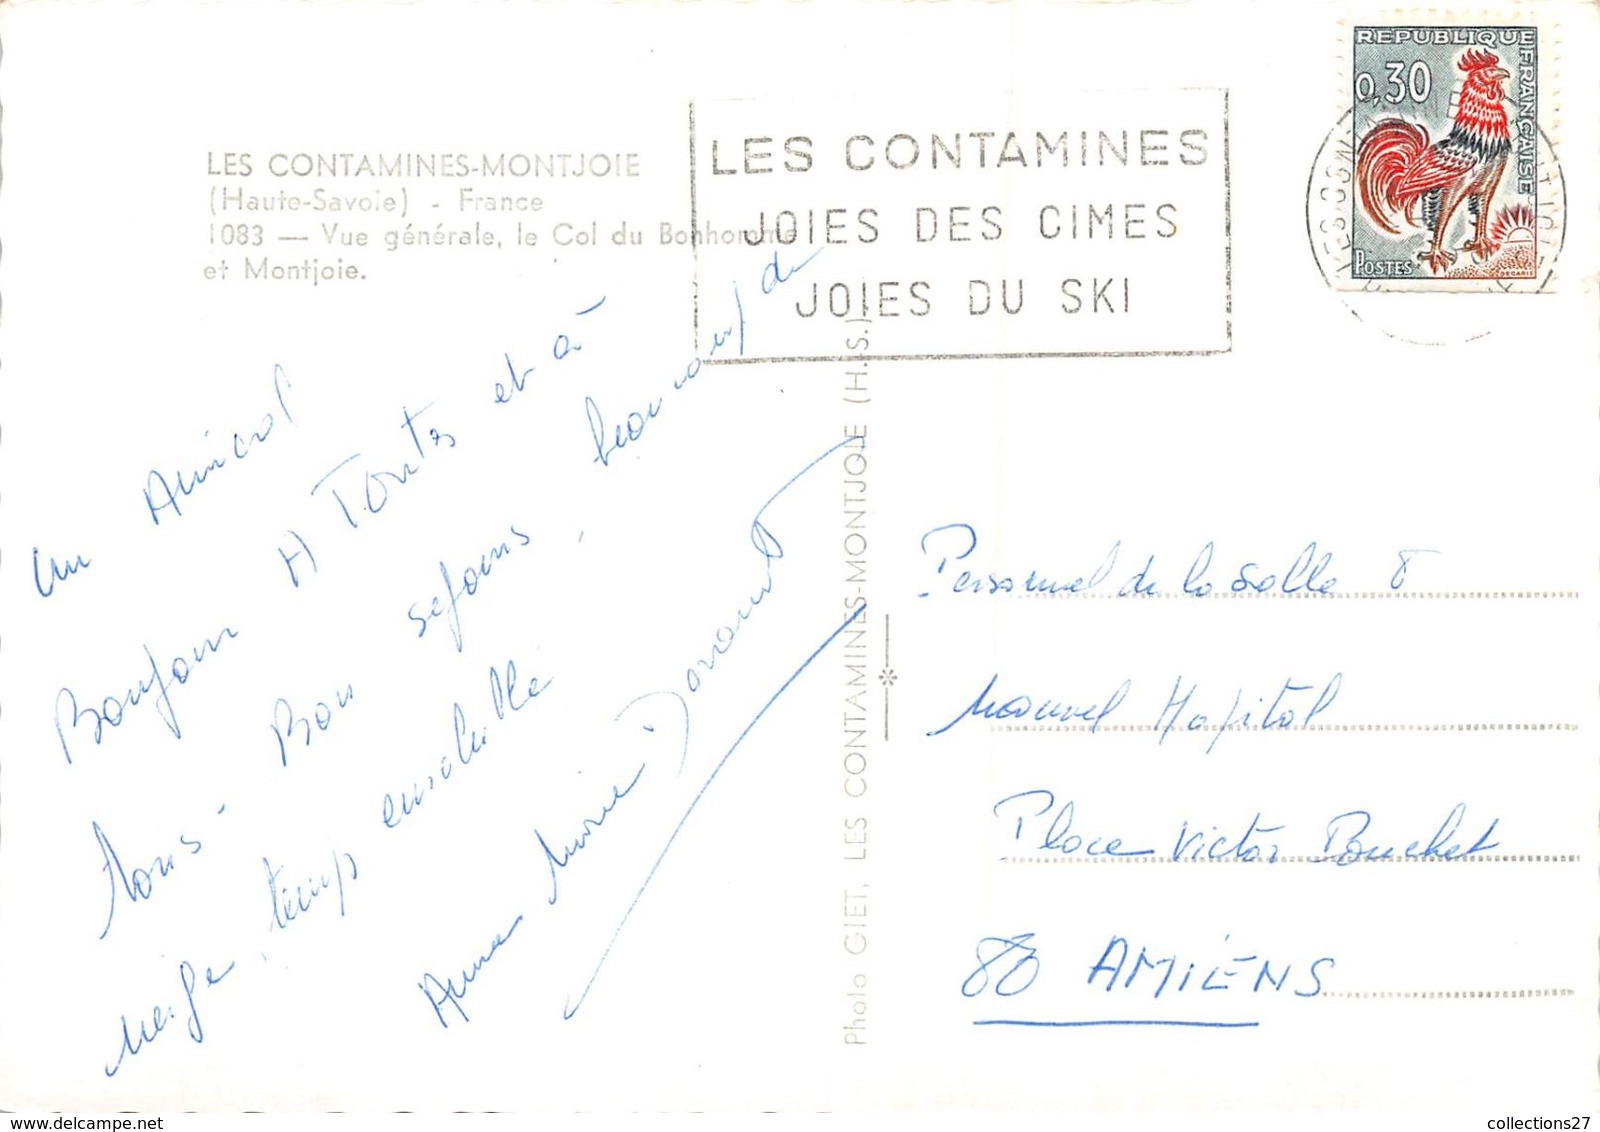 LES CONTAMINES-MONTJOIE
(Haute-Savoie) - France
1083 — Vue générale, le Col du Bonhomme
et Montjoie.
LES CONTAMINES
JOIES DES CIMES
JOIES DU SKI
REPUBLIQUE FRANÇAISE
0,30
POSTES
DECARIS
Un Amical
Bonjour A Toutes et à
Tous - Bon séjour, beaucoup de
neige, temps ensoleillé
Anne Marie
Photo GIET, LES CONTAMINES-MONTJOIE (H.-S.)
Personnel de la Salle 8
Nouvel Hopital
Place Victor Pauchet
80 AMIENS
collections27